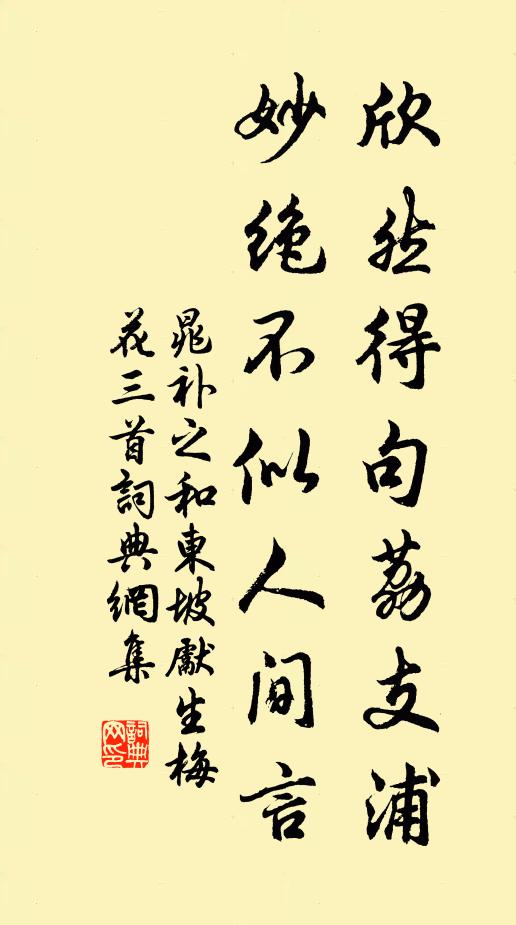 欣然得句荔支浦
妙绝不似人间言
晁补之和東坡獻生梅
花三首詞典網集
詞典網印